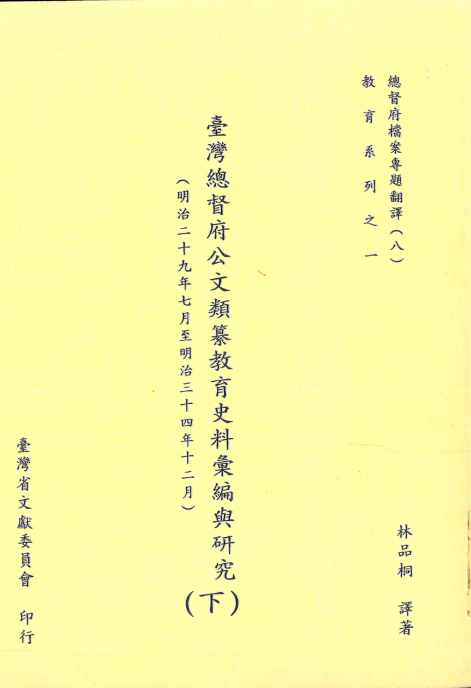 總督府檔案專題翻譯（八）
教育系列之一
林品桐 譯著
臺灣總督府公文類纂教育史料彙編與研究（下）
（明治二十九年七月至明治三十四年十二月）
臺灣省文獻委員會 印行